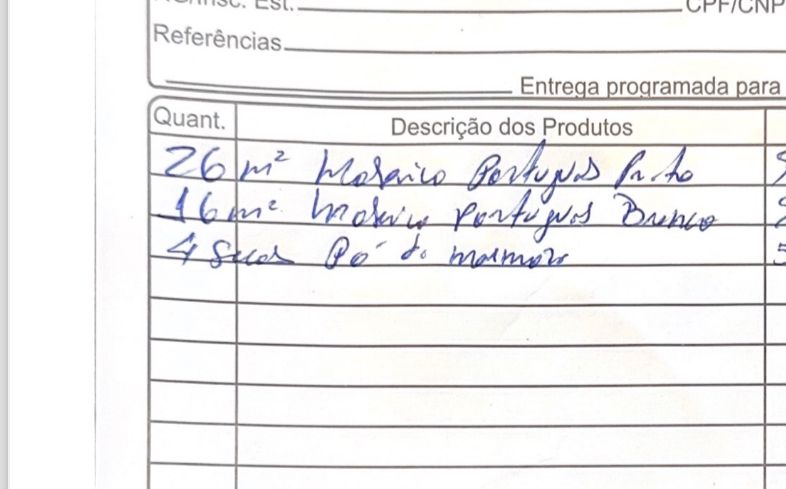 Insc. Est. CPF/CNP
Referências
Entrega programada para
Quant. Descrição dos Produtos
26 m² Mosaico Portugues Preto
16 m² Mosaico Portugues Branco
4 Sacos Pó de marmore